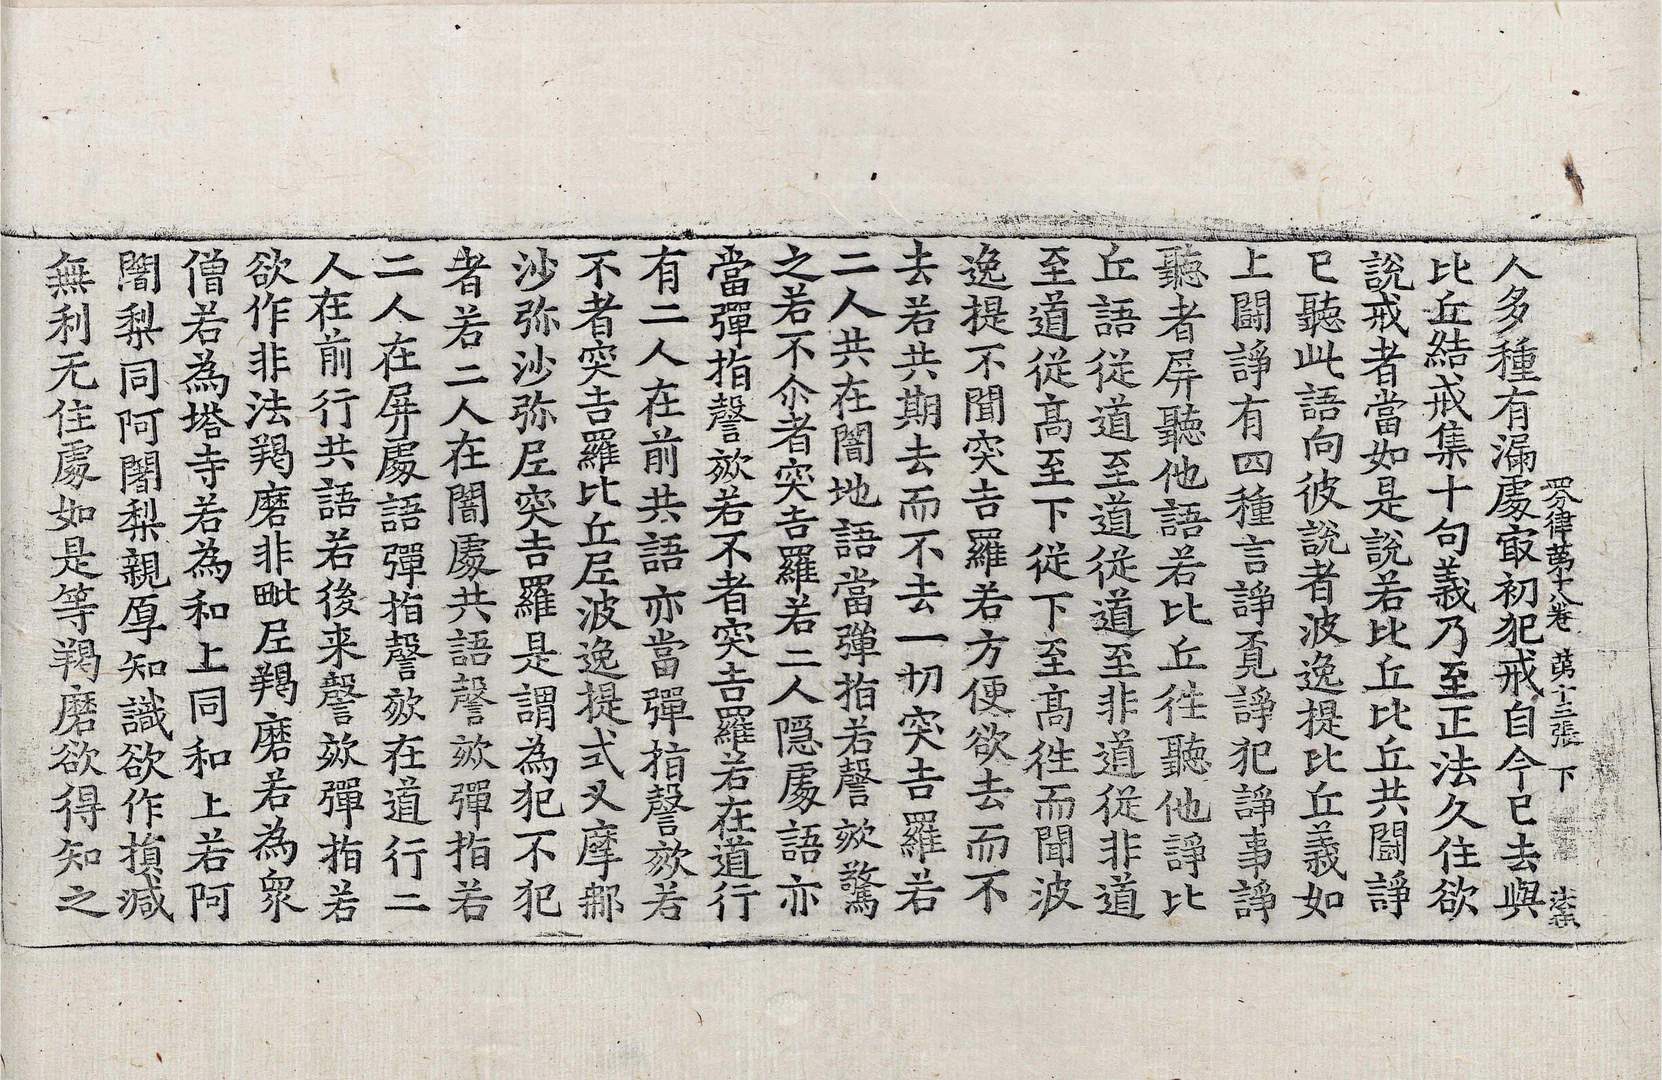 四分律第十八卷 第十三張 下
人多種有漏處冣初犯戒自今已去與
比丘結戒集十句義乃至正法久住欲
說戒者當如是說若比丘比丘共鬪諍
已聽此語向彼說者波逸提比丘義如
上鬪諍有四種言諍覔諍犯諍事諍
聽者屏聽他語若比丘徃聽他諍比
丘語從道至道從道至非道從非道
至道從髙至下從下至髙徃而聞波
逸提不聞突吉羅若方便欲去而不
去若共期去而不去一切突吉羅若
二人共在闇地語當彈指若謦欬驚
之若不尒者突吉羅若二人隱處語亦
當彈指謦欬若不者突吉羅若在道行
有二人在前共語亦當彈指謦欬若
不者突吉羅比丘尼波逸提式叉摩那
沙弥沙弥尼突吉羅是謂為犯不犯
者若二人在闇處共語謦欬彈指若
二人在屏處語彈指謦欬在道行二
人在前行共語若後来謦欬彈指若
欲作非法羯磨非毗尼羯磨若為衆
僧若為塔寺若為和上同和上若阿
闍梨同阿闍梨親厚知識欲作損減
無利无住處如是等羯磨欲得知之